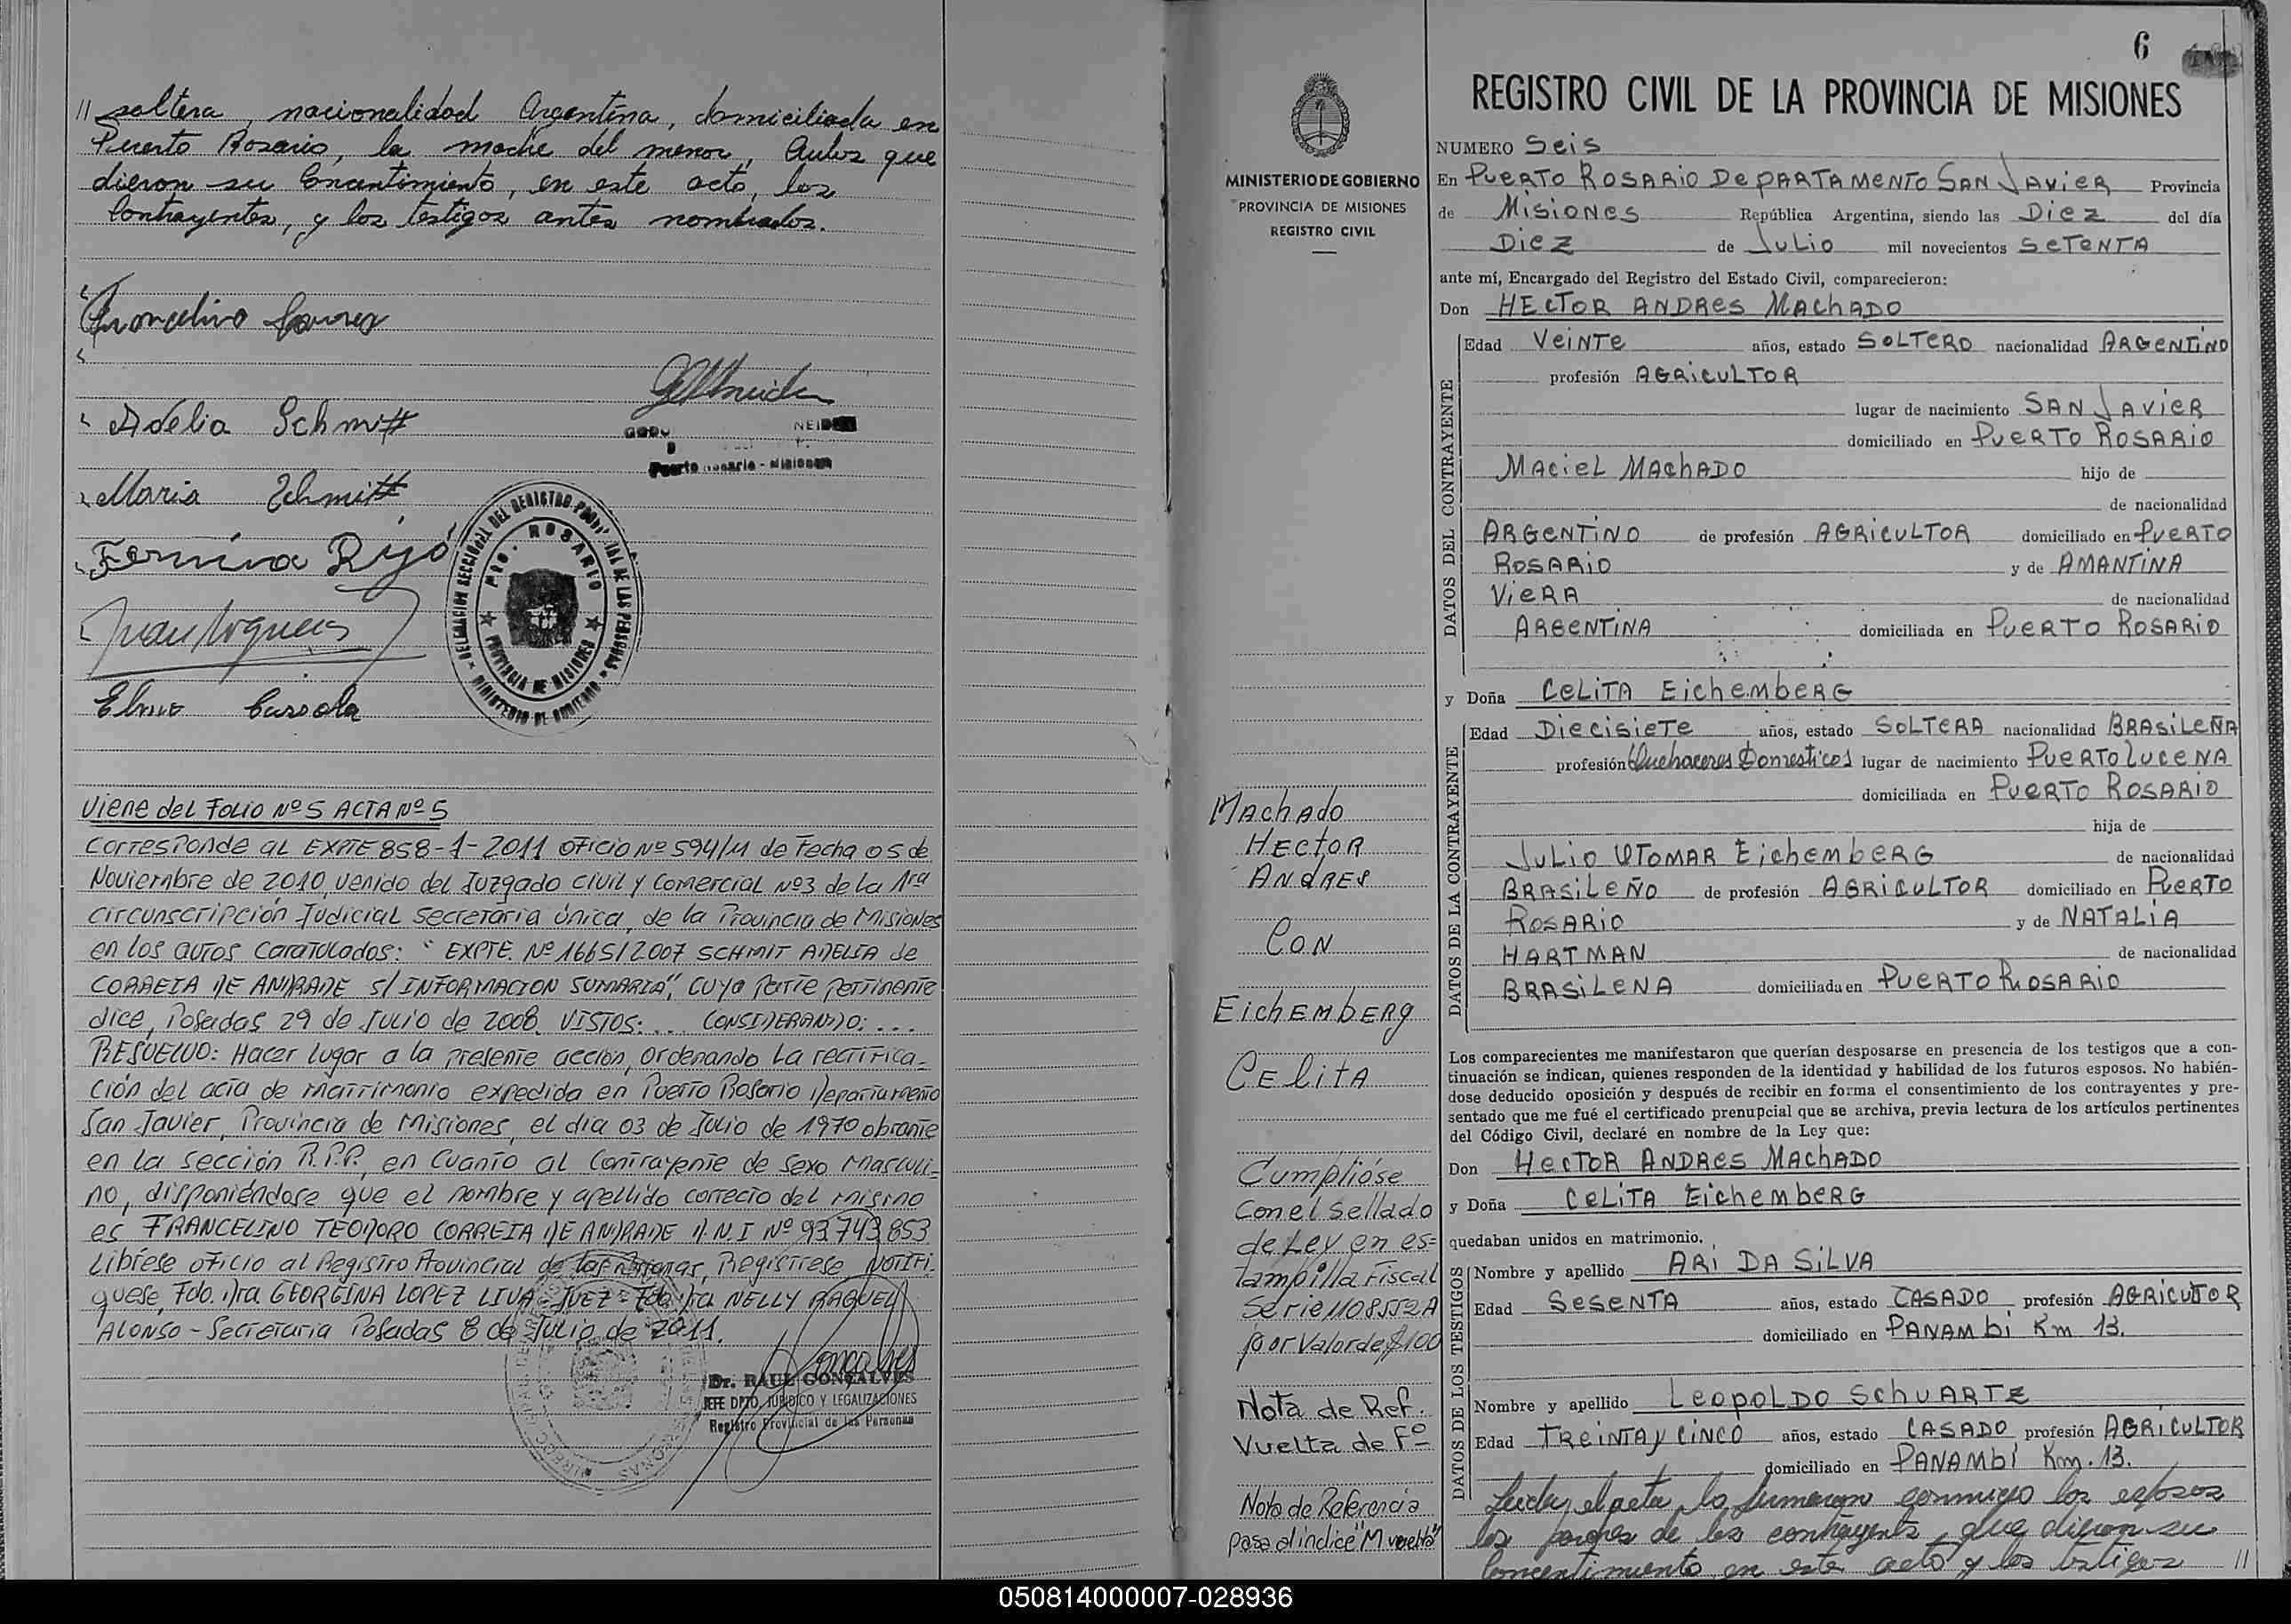 // soltera, nacionalidad Argentina, domiciliada en
Puerto Rosario, la madre del menor, Aulos que
dieron su Concentimiento, en este acto, los
Contrayentes, y los testigos antes nombrados.
Adelia Schmitt
Maria Schmitt
Fermina Rijó
NEI
Puerto Rosario - Misiones
DELEGACION SECCIONAL DEL REGISTRO PROVINCIAL DE LAS PERSONAS
MINISTERIO DE GOBIERNO
PTO. ROSARIO
PROVINCIA DE MISIONES
Viene del Folio Nº 5 ACTA Nº 5
Corresponde al EXPTE 858-1-2011 oficio Nº 594/11 de Fecha 05 de
Noviembre de 2010, venido del Juzgado Civil y Comercial Nº3 de la 1ra
Circunscripción Judicial Secretaría única, de la Provincia de Misiones
en los autos caratulados: " EXPTE. Nº 1665/2007 SCHMIT ADELIA de
CORREIA DE ANDRADE S/ INFORMACION SUMARIA", cuya parte pertinente
dice, Posadas 29 de Julio de 2008. VISTOS:... CONSIDERANDO:...
RESUELVO: Hacer lugar a la presente acción, ordenando la rectifica-
ción del acta de matrimonio expedida en Puerto Rosario Departamento
San Javier, Provincia de Misiones, el día 03 de Julio de 1970 obrante
en la sección R.P.P, en cuanto al Contrayente de Sexo Masculi-
no, disponiéndose que el nombre y apellido correcto del mismo
es FRANCELINO TEODORO CORREIA DE ANDRADE D.N.I Nº 93.743.853
Líbrese oficio al Registro Provincial de las Personas, Registrese Notifi-
quese, Fdo. Dra. GEORGINA LOPEZ LIVA - JUEZ - Fdo. Dra NELLY RAQUEL
ALONSO - Secretaria Posadas 8 de Julio de 2011.
Dr. RAUL GONÇALVES
JEFE DPTO. JURIDICO Y LEGALIZACIONES
Registro Provincial de las Personas
6
MINISTERIO DE GOBIERNO
PROVINCIA DE MISIONES
REGISTRO CIVIL
Machado
Hector
Andres
Con
Eichemberg
Celita
Cumplióse
Con el Sellado
de Ley en es=
tampilla Fiscal
Serie 1108552A
por Valor de $100
Nota de Ref.
Vuelta de Fº
Nota de Referencia
pasa al indice "M vuelta"
REGISTRO CIVIL DE LA PROVINCIA DE MISIONES
NUMERO Seis
En Puerto Rosario Departamento San Javier Provincia
de Misiones República Argentina, siendo las Diez del día
Diez de Julio mil novecientos Setenta
ante mí, Encargado del Registro del Estado Civil, comparecieron:
Don HECTOR ANDRES MACHADO
DATOS DEL CONTRAYENTE
Edad Veinte años, estado SOLTERO nacionalidad ARGENTINO
profesión AGRICULTOR
lugar de nacimiento SAN JAVIER
domiciliado en PUERTO ROSARIO
MACIEL MACHADO hijo de
de nacionalidad
ARGENTINO de profesión AGRICULTOR domiciliado en PUERTO
ROSARIO y de AMANTINA
VIERA de nacionalidad
ARGENTINA domiciliada en PUERTO ROSARIO
y Doña CELITA EICHEMBERG
DATOS DE LA CONTRAYENTE
Edad Diecisiete años, estado SOLTERA nacionalidad BRASILEÑA
profesión Quehaceres Domesticos lugar de nacimiento PUERTO LUCENA
domiciliada en PUERTO ROSARIO
hija de
JULIO OTOMAR EICHEMBERG de nacionalidad
BRASILEÑO de profesión AGRICULTOR domiciliado en PUERTO
ROSARIO y de NATALIA
HARTMAN de nacionalidad
BRASILENA domiciliada en PUERTO ROSARIO
Los comparecientes me manifestaron que querían desposarse en presencia de los testigos que a con-
tinuación se indican, quienes responden de la identidad y habilidad de los futuros esposos. No habién-
dose deducido oposición y después de recibir en forma el consentimiento de los contrayentes y pre-
sentado que me fué el certificado prenupcial que se archiva, previa lectura de los artículos pertinentes
del Código Civil, declaré en nombre de la Ley que:
Don HECTOR ANDRES MACHADO
y Doña CELITA EICHEMBERG
quedaban unidos en matrimonio.
DATOS DE LOS TESTIGOS
Nombre y apellido ARI DA SILVA
Edad SESENTA años, estado CASADO profesión AGRICULTOR
domiciliado en PANAMBI Km 13.
Nombre y apellido LEOPOLDO SCHUARTZ
Edad TREINTA y CINCO años, estado CASADO profesión AGRICULTOR
domiciliado en PANAMBI Km. 13.
Leida el acta, la firmaron conmigo los esposos
los padres de los contrayents, que dieron su
Concentimiento en este acto y los testigos //
050814000007-028936